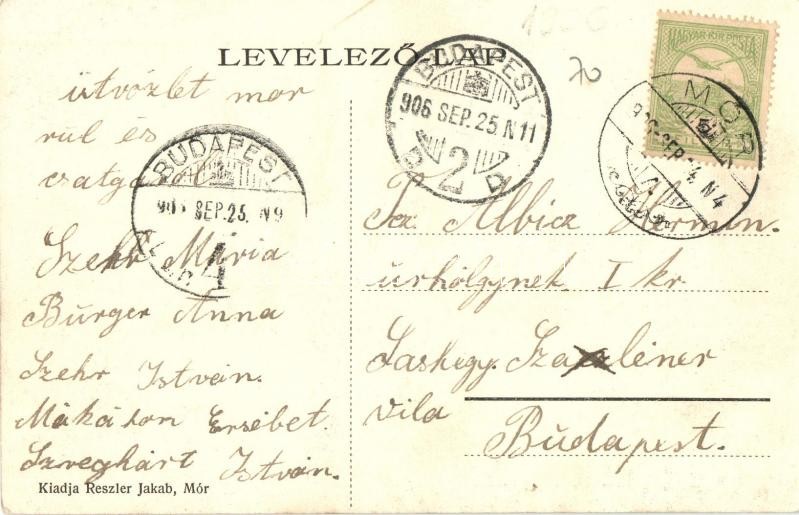 LEVELEZŐ LAP
üdvözlet mor
rul és
csatgaról
Szehr Mária
Bürger Anna
Szehr István.
Makáson Ersébet.
Szveghárt István.
Kiadja Reszler Jakab, Mór
BUDAPEST
906 SEP. 25. N9
4
BUDAPEST
906 SEP. 25. N11
2
D D
70
MAGYAR KIR. POSTA
MÓR
SEP. 24 N4
Albicz Hermin.
úrhölgynek I kr
Sashegy.
vila
Budapest.